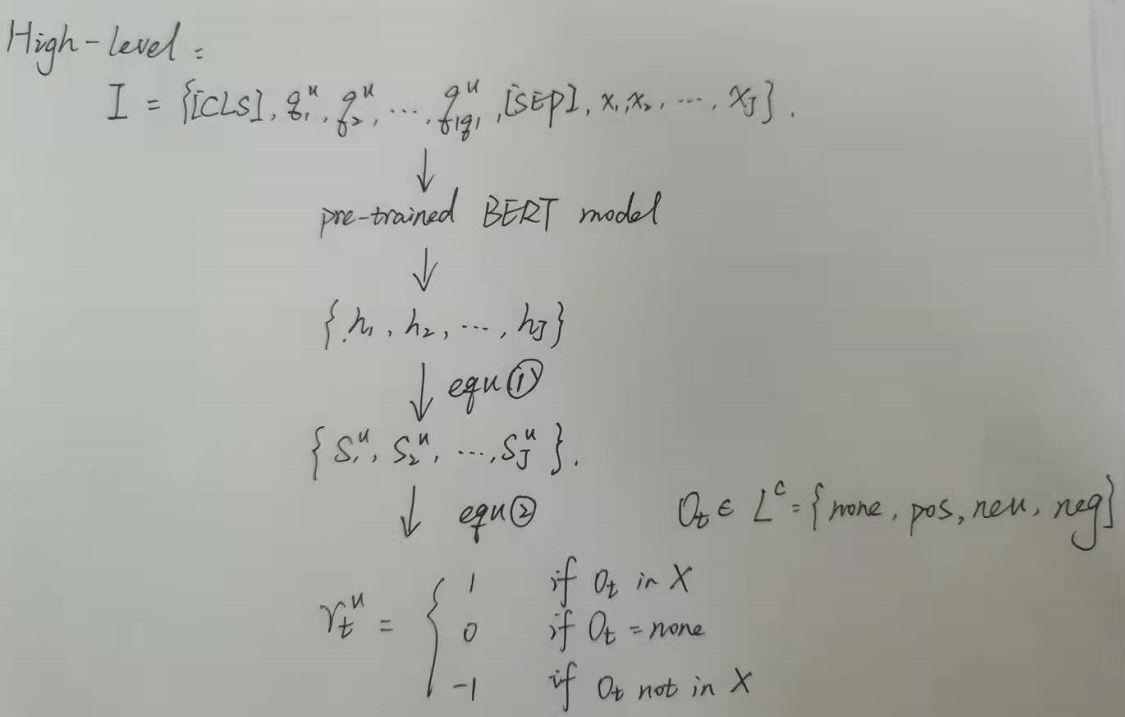 High-level:
I = {[CLS], q₁ᵘ, q₂ᵘ, ..., q|q|ᵘ, [SEP], x₁, x₂, ..., x_J}.
↓
pre-trained BERT model
↓
{h₁, h₂, ..., h_J}
↓ equ ①
{S₁ᵘ, S₂ᵘ, ..., S_Jᵘ}.
↓ equ ② O_t ∈ Lᶜ = {none, pos, neu, neg}
r_tᵘ = { 1 if O_t in X
0 if O_t = none
-1 if O_t not in X